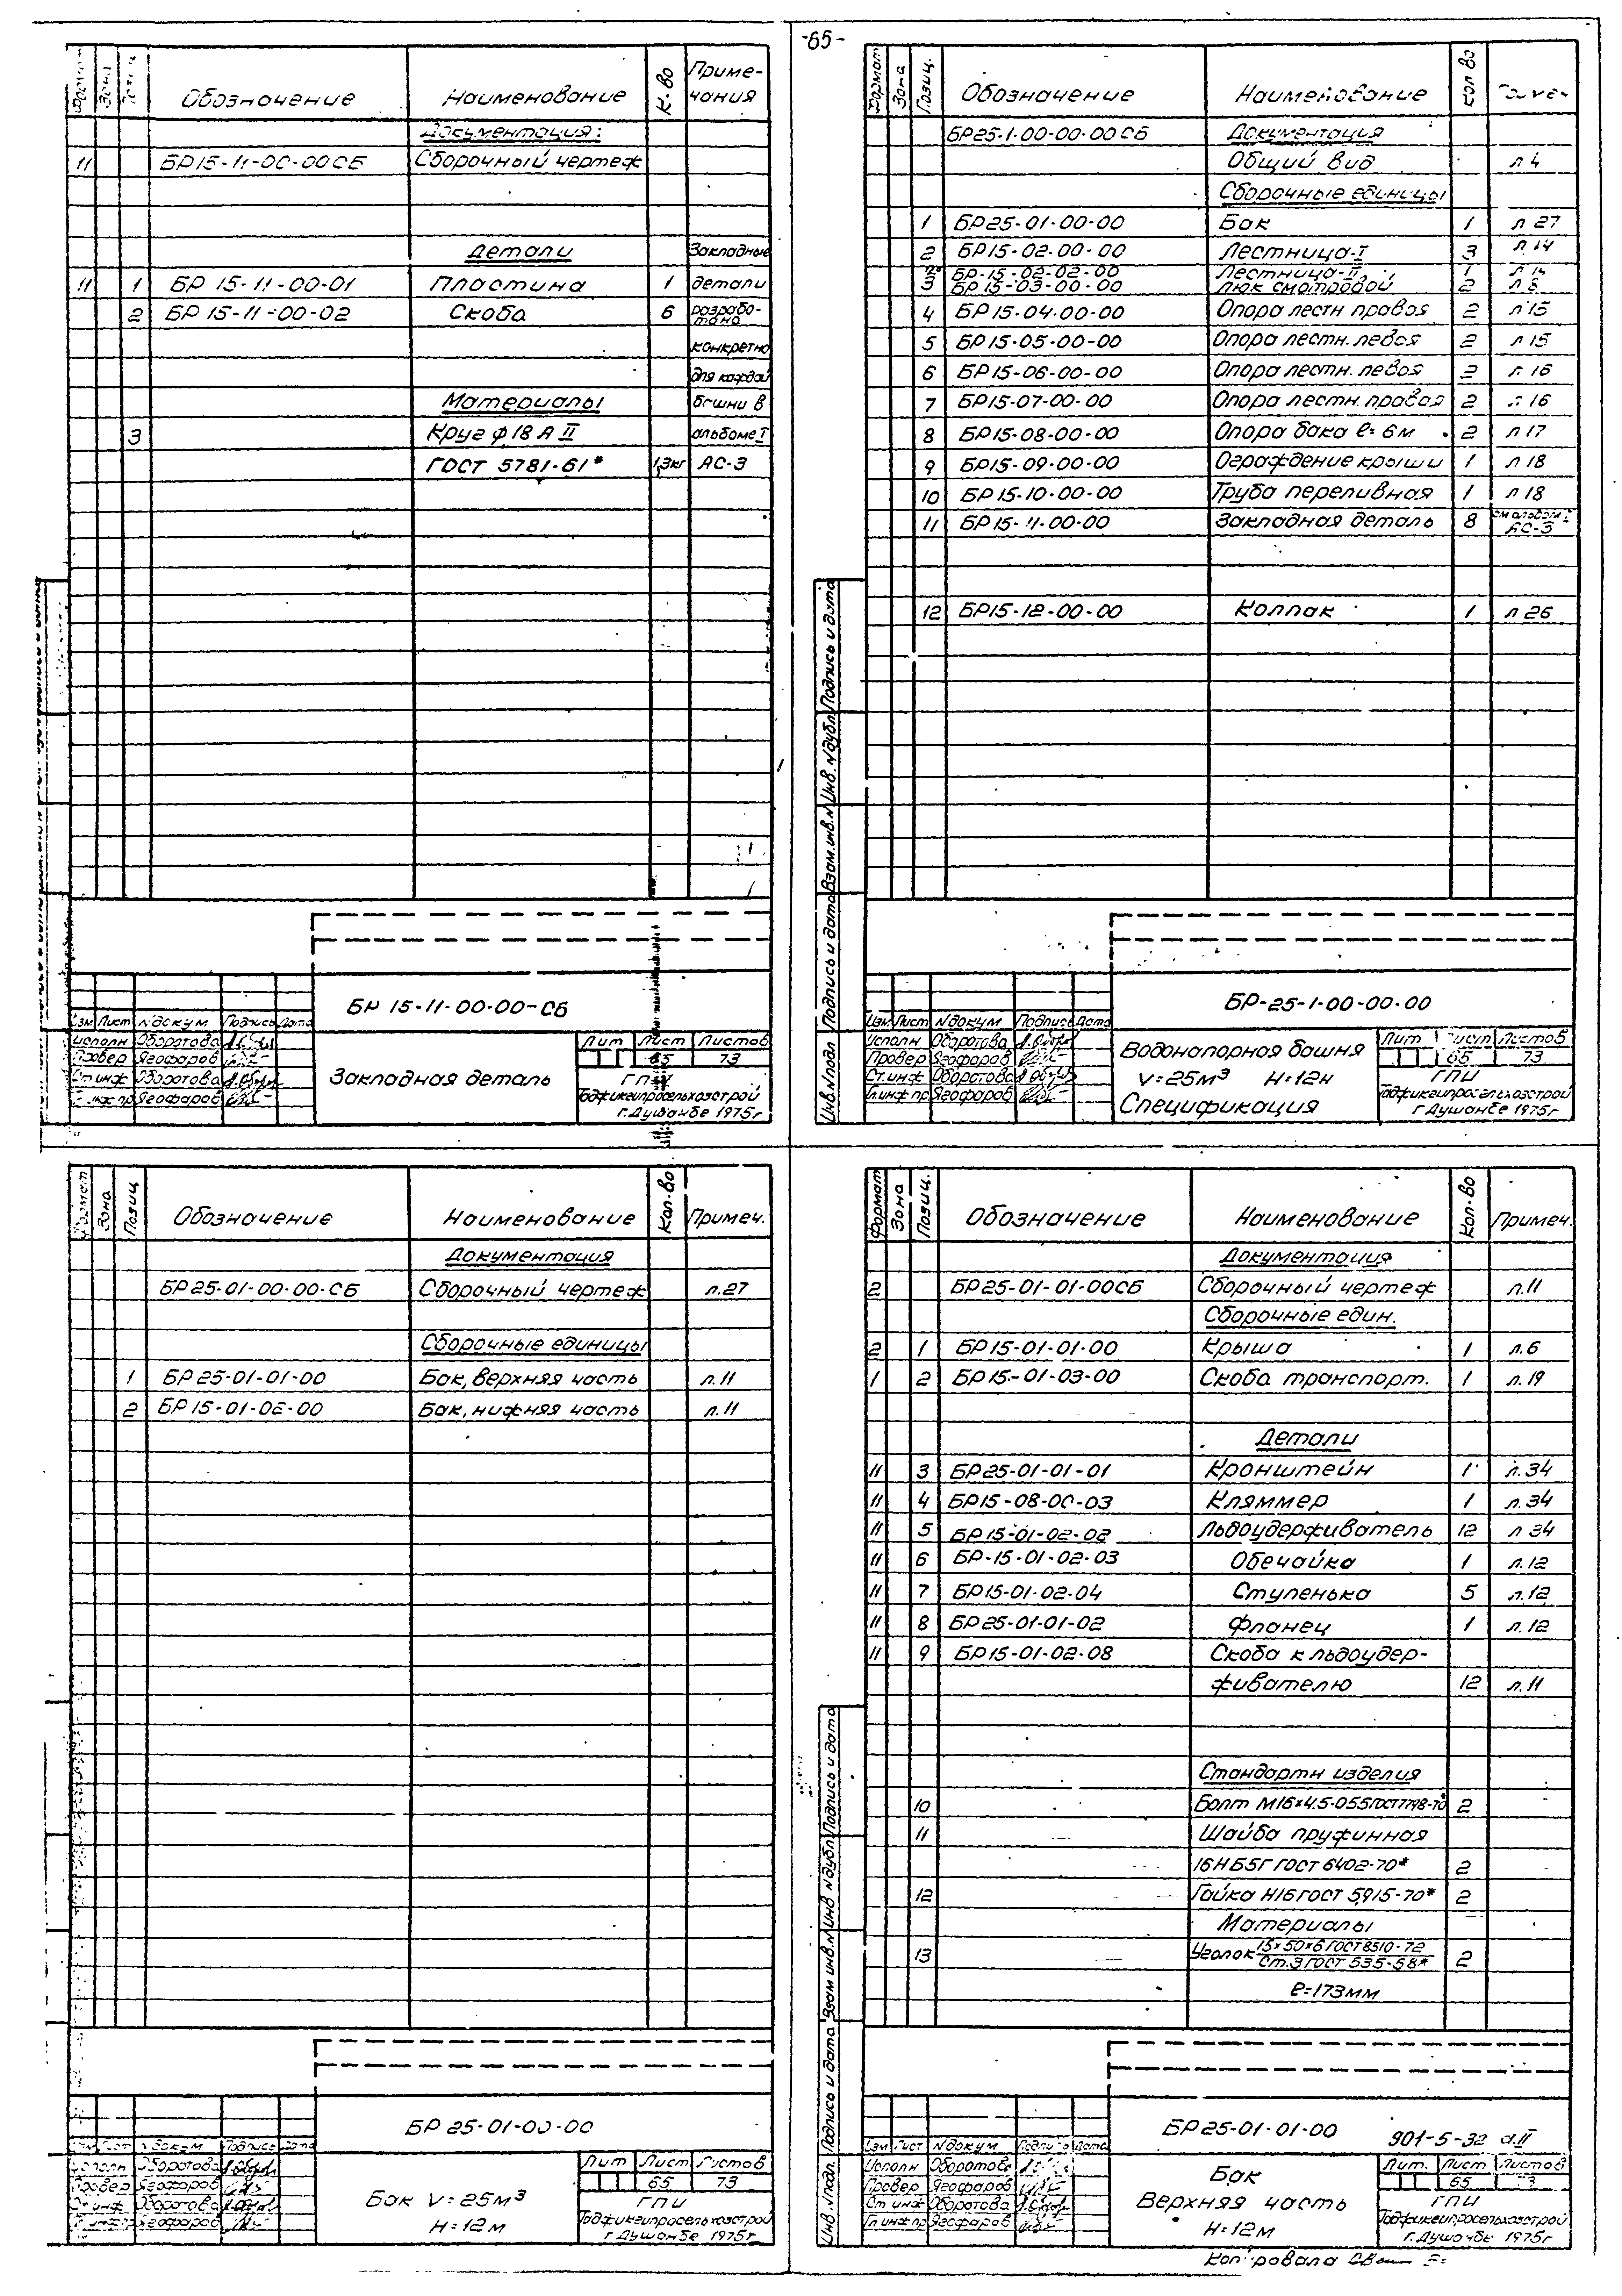 -65-
Обозначение Наименование К-во Приме-
чания
Документация:
11 БР15-11-00-00СБ Сборочный чертеж
Детали Закладные
11 1 БР 15-11-00-01 Пластина 1 детали
2 БР 15-11-00-02 Скоба 6 разрабо-
тана
конкретно
для каждой
Материалы башни в
3 Круг ф 18 А II альбоме I
ГОСТ 5781-61* 1,3кг АС-3
БР 15-11-00-00-СБ
Изм Лист №докум Подпись Дата
Исполн Оборотова
Провер Ягофаров
Ст.инж Оборотова
Гл.инж пр Ягофаров
Закладная деталь
Лит Лист Листов
65 73
ГПИ
Таджикгипросельхозстрой
г.Душанбе 1975г
Формат Зона Позиц. Обозначение Наименование Кол во
БР25-1-00-00-00СБ Документация
Общий вид л 4
Сборочные единицы
1 БР25-01-00-00 Бак 1 л 27
2 БР15-02-00-00 Лестница-I 3 л 14
БР-15-02-02-00 Лестница-II 1 л 14
3 БР 15-03-00-00 Люк смотровой 2 л 5
4 БР15-04-00-00 Опора лестн правая 2 л 15
5 БР15-05-00-00 Опора лестн. левая 2 л 15
6 БР15-06-00-00 Опора лестн. левая 2 л 16
7 БР15-07-00-00 Опора лестн. правая 2 л 16
8 БР15-08-00-00 Опора бака ℓ=6м 2 л 17
9 БР15-09-00-00 Ограждение крыши 1 л 18
10 БР15-10-00-00 Труба переливная 1 л 18
11 БР15-11-00-00 Закладная деталь 8 см альбом I
АС-3
12 БР15-12-00-00 Колпак 1 л 26
Инв.№подл Подпись и дата Взам.инв.№ Инв.№дубл. Подпись и дата
БР-25-1-00-00-00
Изм Лист №докум Подпись Дата
Исполн Оборотова
Провер Ягофаров
Ст.инж Оборотова
Гл.инж пр Ягофаров
Водонапорная башня
V=25м³ Н=12м
Спецификация
Лит Лист Листов
65 73
ГПИ
Таджикгипросельхозстрой
г.Душанбе 1975г
Формат Зона Позиц Обозначение Наименование Кол-во Примеч.
Документация
БР25-01-00-00-СБ Сборочный чертеж л.27
Сборочные единицы
1 БР25-01-01-00 Бак, верхняя часть л.11
2 БР15-01-02-00 Бак, нижняя часть л.11
БР 25-01-00-00
Изм Лист №докум Подпись Дата
Исполн Оборотова
Провер Ягофаров
Ст инж Оборотова
Гл.инж пр Ягофаров
Бак V=25м³
Н=12м
Лит Лист Листов
65 73
ГПИ
Таджикгипросельхозстрой
г.Душанбе 1975г
Формат Зона Позиц. Обозначение Наименование Кол-во Примеч.
Документация
2 БР25-01-01-00СБ Сборочный чертеж л.11
Сборочные един.
2 1 БР15-01-01-00 Крыша 1 л.6
1 2 БР15-01-03-00 Скоба транспорт. 1 л.19
Детали
11 3 БР25-01-01-01 Кронштейн 1 л.34
11 4 БР15-08-00-03 Кляммер 1 л.34
11 5 БР15-01-02-02 Льдоудерживатель 12 л 34
11 6 БР-15-01-02-03 Обечайка 1 л.12
11 7 БР15-01-02-04 Ступенька 5 л.12
11 8 БР25-01-01-02 Фланец 1 л.12
11 9 БР15-01-02-08 Скоба к льдоудер-
живателю 12 л.11
Стандартн изделия
10 Болт М16×4.5-055 ГОСТ 7798-70 2
11 Шайба пружинная
16Н65Г ГОСТ 6402-70* 2
12 Гайка Н16 ГОСТ 5915-70* 2
Материалы
13 Уголок 15×50×6 ГОСТ 8510-72
Ст.3 ГОСТ 535-58* 2
ℓ=173мм
Инв.№подл. Подпись и дата Взам инв.№ Инв №дубл. Подпись и дата
БР25-01-01-00 901-5-32 а.II
Изм Лист №докум Подпись Дата
Исполн Оборотова
Провер Ягофаров
Ст инж Оборотова
Гл.инж пр Ягофаров
Бак
Верхняя часть
Н=12м
Лит. Лист Листов
65 73
ГПИ
Таджикгипросельхозстрой
г.Душанбе 1975г
Копировала